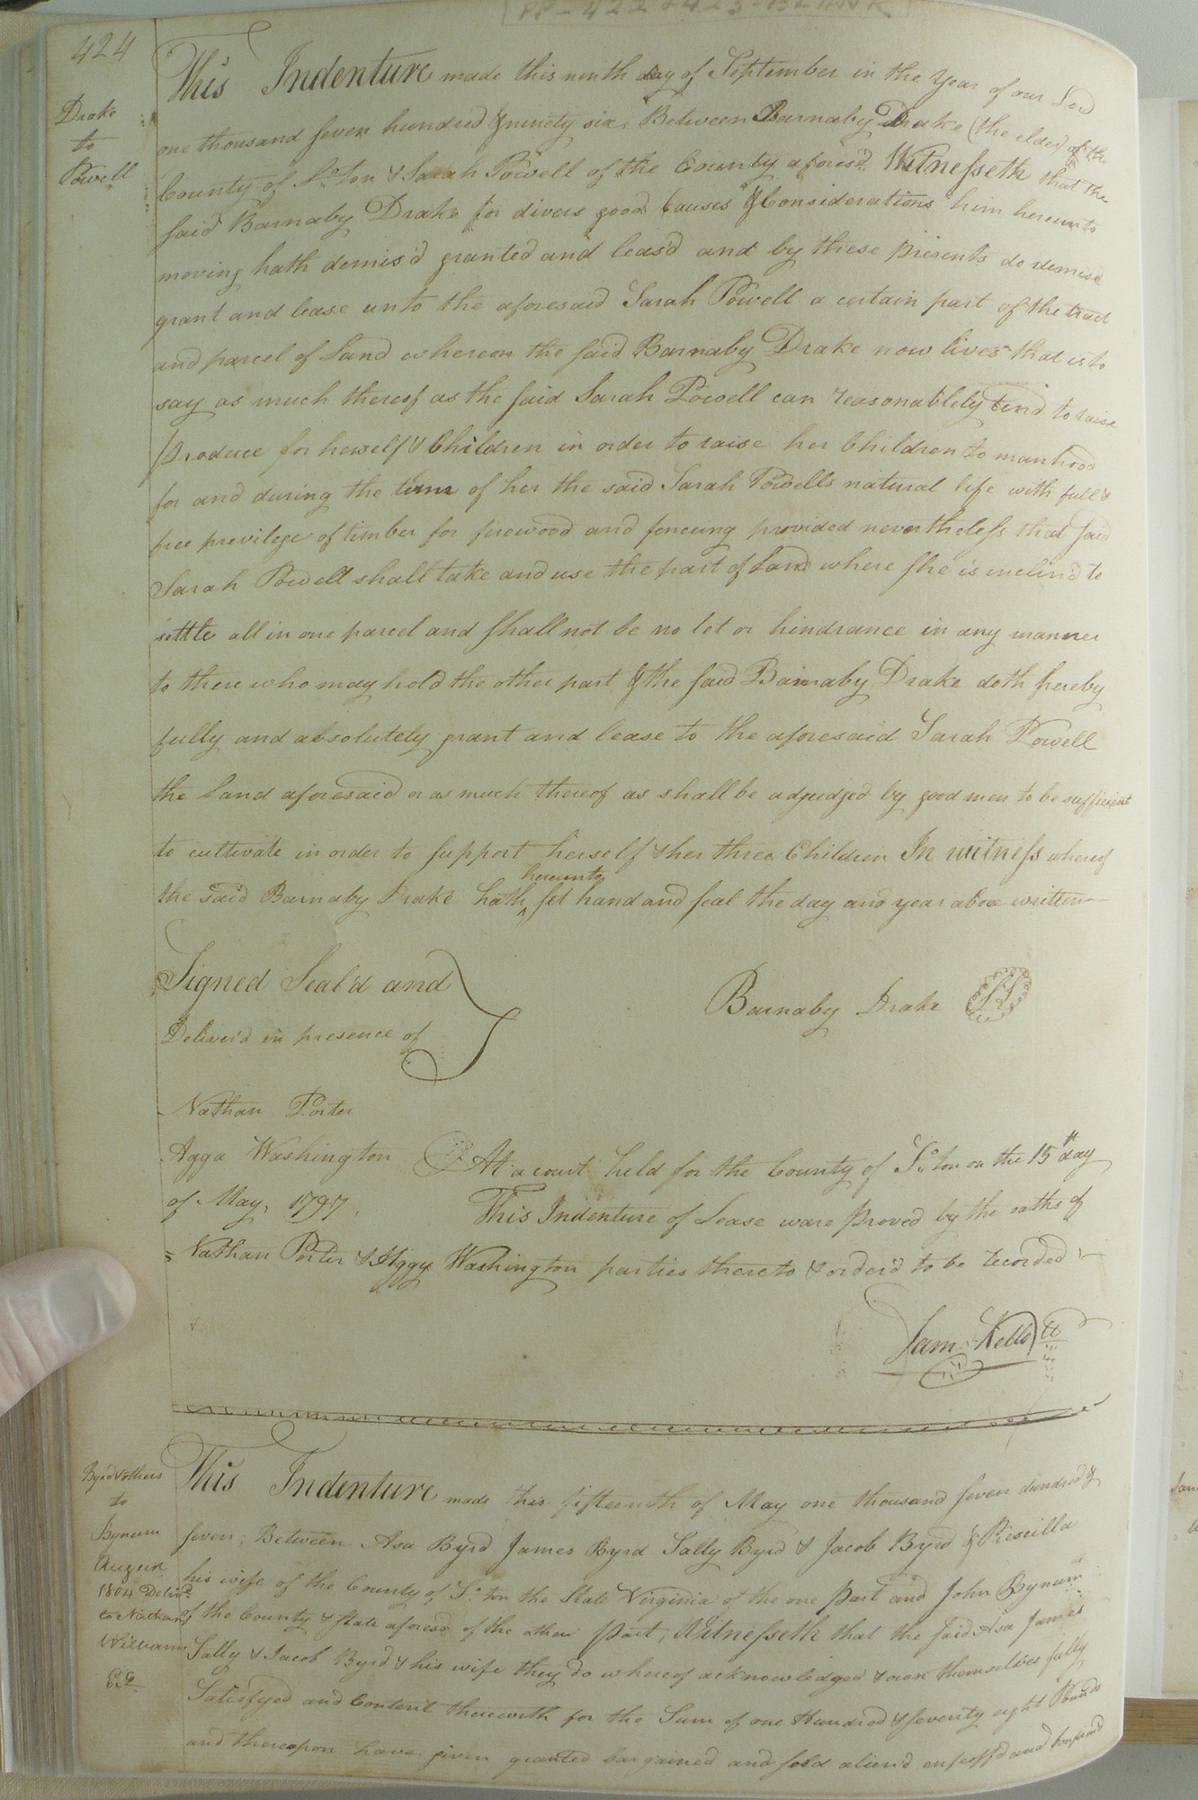 PP-422+423-BLANK
424
Drake
to
Powell
This Indenture made this ninth day of September in the Year of our Lord
one thousand seven hundred & ninety six, Between Barnaby Drake (the elder) of the
County of So ton & Sarah Powell of the County aforesd. Witnesseth that the
said Barnaby Drake for divers good Causes & Considerations him hereunto
moving hath demis'd granted and leas'd and by these presents do demise
grant and lease unto the aforesaid Sarah Powell a certain part of the tract
and parcel of Land whereon the said Barnaby Drake now lives that is to
say as much thereof as the said Sarah Powell can reasonablely tend to raise
produce for herself & Children in order to raise her Children to manhood
for and during the term of her the said Sarah Powells natural life with full &
free previlege of timber for firewood and fencing provided nevertheless that said
Sarah Powell shall take and use the part of Land where she is inclin'd to
settle all in one parcel and shall not be no let or hindrance in any manner
to those who may hold the other part & the said Barnaby Drake doth hereby
fully and absolutely grant and lease to the aforesaid Sarah Powell
the Land aforesaid or as much thereof as shall be adjudged by good men to be sufficient
to cultivate in order to support herself & her three Children In witness whereof
the said Barnaby Drake hath hereunto set hand and seal the day and year above written
Signed Seal'd and
Deliver'd in presence of
Barnaby Drake LS
Nathan Porter
Agga Washington
At a court held for the County of So ton on the 15th day
of May, 1797.
This Indenture of Lease ware proved by the oaths of
Nathan Porter & Aggy Washington parties thereto & order'd to be recorded
Sam Kello Ct
Byrd & others
to
Bynum
August
1804 Delivd
to Nathan
Williams
This Indenture made this fifteenth of May one thousand seven hundred &
seven; Between Asa Byrd James Byrd Sally Byrd & Jacob Byrd & Priscilla
his wife of the County of So ton the State Virginia of the one Part and John Bynum
of the County & State aforesd of the other Part, Witnesseth that the said Asa James
Sally & Jacob Byrd & his wife they do whereof acknowledged & own themselves fully
Satisfyed and Content therewith for the Sum of one Hundred & seventy eight Pounds
and thereupon have given granted bargained and sold alien'd enfeoff'd and confirm'd